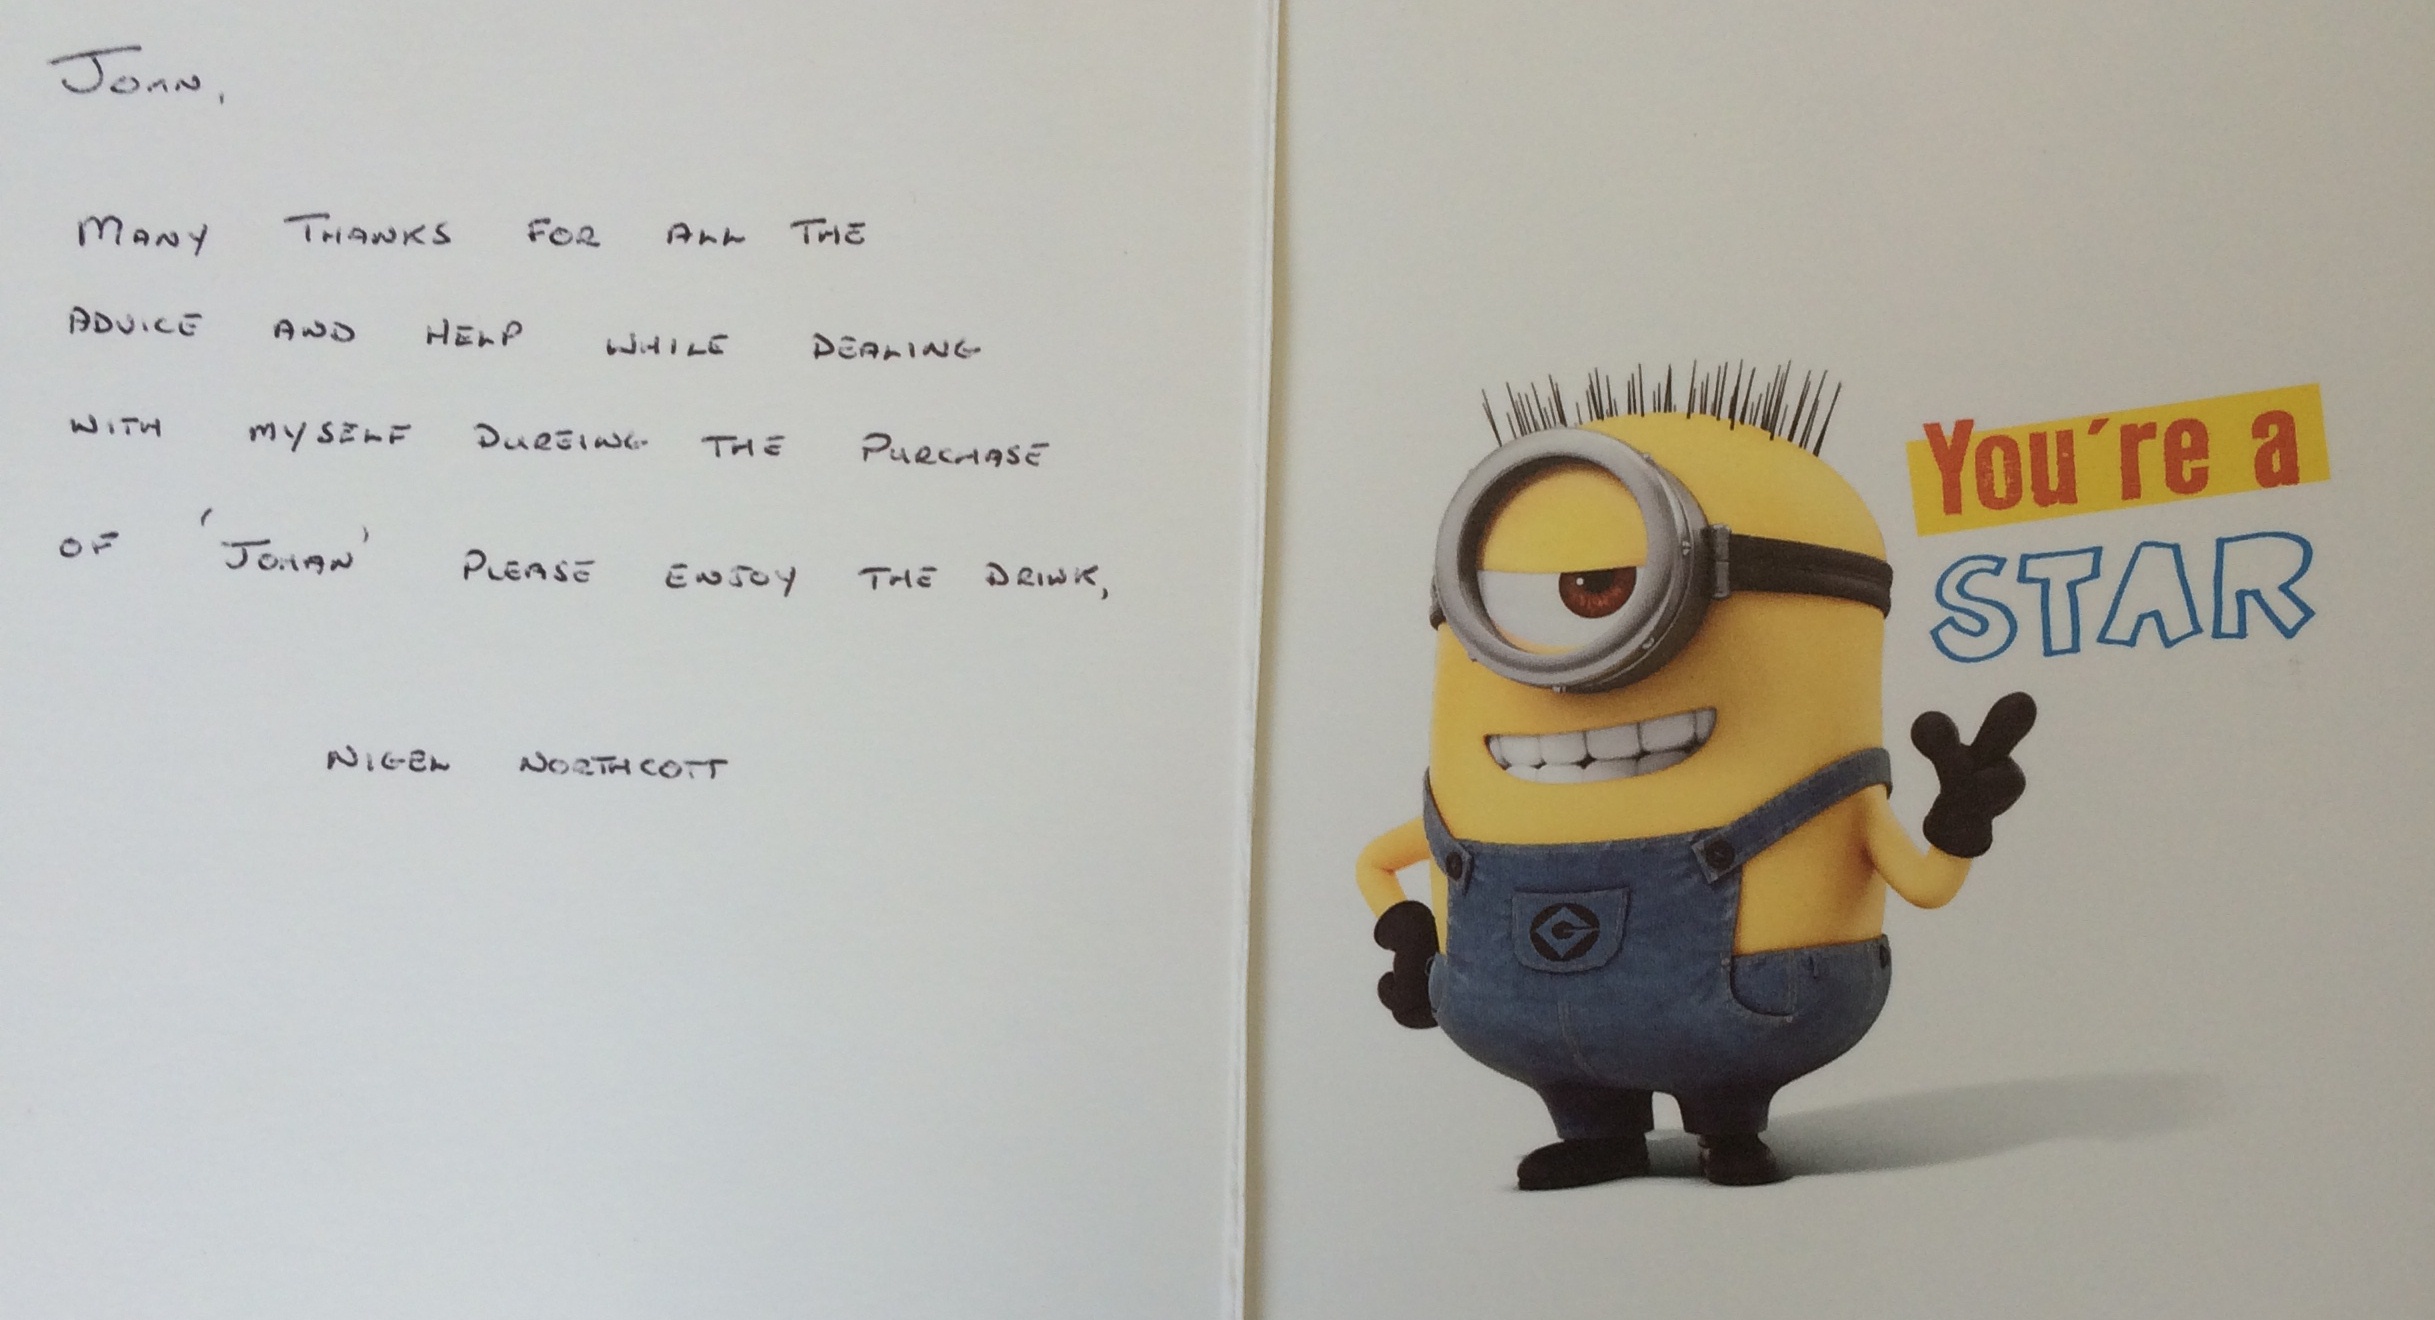 JOHN,
MANY THANKS FOR ALL THE
ADVICE AND HELP WHILE DEALING
WITH MYSELF DUREING THE PURCHASE
OF 'JOHAN' PLEASE ENJOY THE DRINK,
NIGEL NORTHCOTT
You're a
STAR